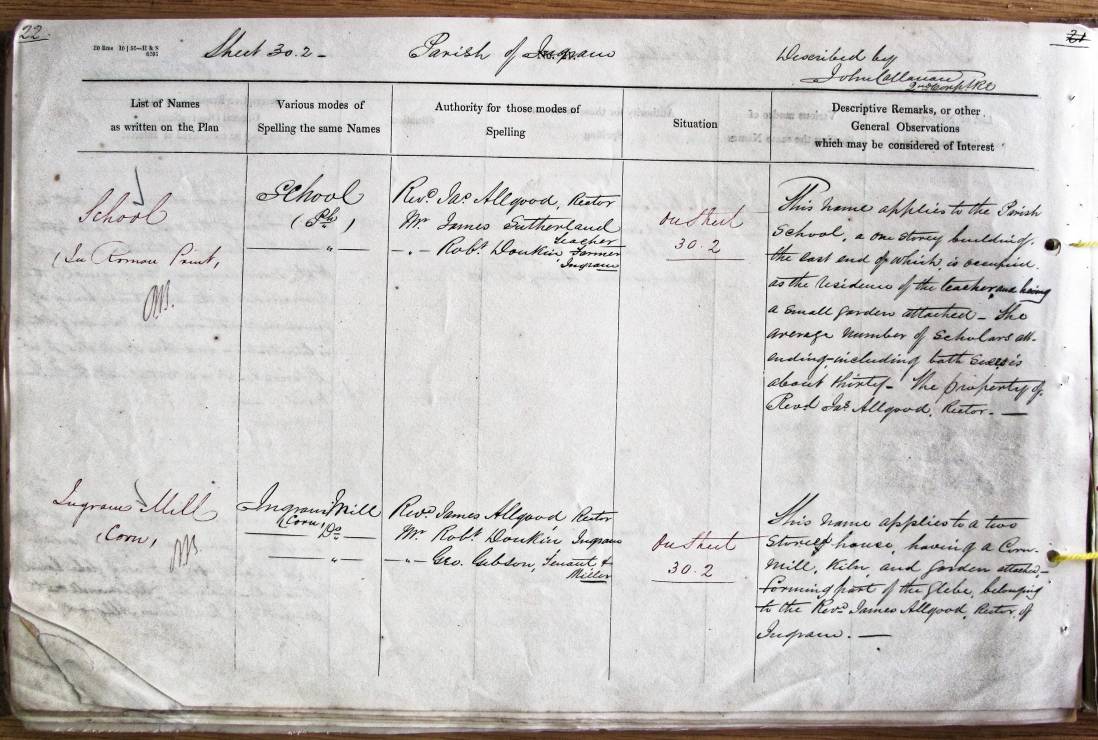 22
21
20 lines 10 | 56—H & S
6205
Sheet 30.2 -
Parish of Ingram
Described by
John Callanan
2nd Corpl RE
List of Names
as written on the Plan
Various modes of
Spelling the same Names
Authority for those modes of
Spelling
Situation
Descriptive Remarks, or other
General Observations
which may be considered of Interest
School
(In Roman Print)
School
(Ph)
"
Revd. Jas. Allgood, Rector
Mr. James Sutherland
Teacher
" - Robt. Donkin Farmer
Ingram
On Sheet
30.2
This name applies to the Parish
School, a one storey building.
the east end of which is occupied
as the residence of the teacher, and having
a small garden attached - The
average number of Scholars att-
ending - including both sexes is
about thirty - The property of
Revd Jas. Allgood, Rector. —
Ingram Mill
(Corn)
Ingram Mill
(Corn) Do
"
Revd. James Allgood Rector
Mr. Robt. Donkin Ingram
- " - Geo. Gibson, Tenant &
Miller
On Sheet
30.2
This name applies to a two
storey house, having a Corn
Mill, Kiln and garden attached,-
forming part of the Glebe, belonging
to the Revd. James Allgood, Rector of
Ingram. —